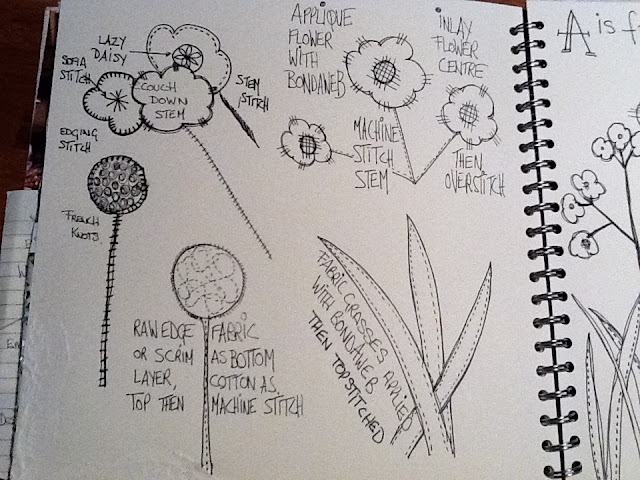 LAZY
DAISY
STITCH
COUCH
DOWN
STEM
STEM
STITCH
EDGING
STITCH
FRENCH
KNOTS
APPLIQUE
FLOWER
WITH
BONDAWEB
INLAY
FLOWER
CENTRE
MACHINE
STITCH
STEM
THEN
OVERSTITCH
RAW EDGE
OR SCRIM
LAYER,
TOP THEN
FABRIC
AS BOTTOM
COTTON AS
MACHINE STITCH
FABRIC GRASSES
WITH BONDAWEB APPLIED
THEN TOPSTITCHED
A is f